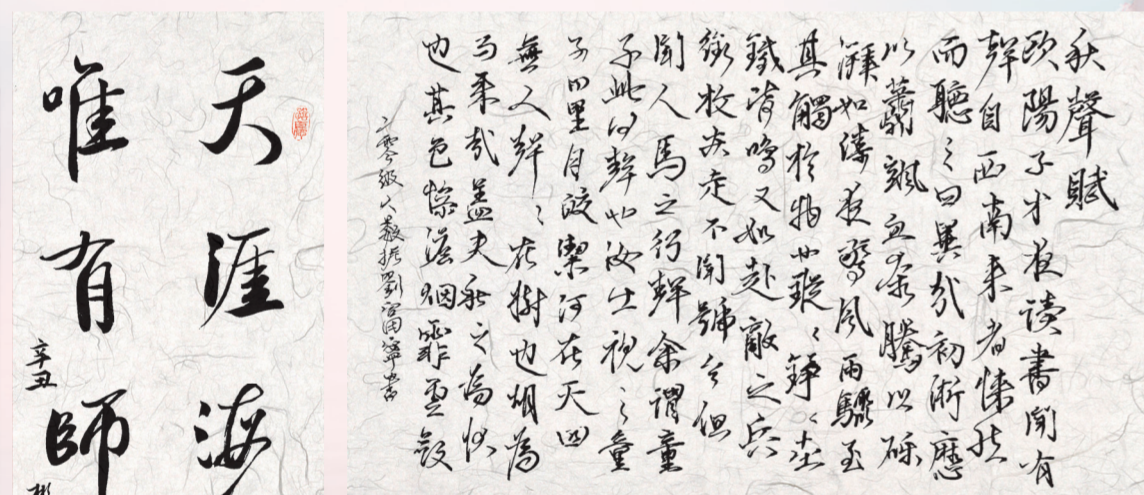 秋聲賦
歐陽子方夜讀書聞有
聲自西南來者悚然
而聽之曰異哉初淅瀝
以蕭颯忽奔騰以砰
湃如濤夜驚風雨驟至
其觸於物也鏦々錚々金
鐵皆鳴又如赴敵之兵
銜枚疾走不聞號令但
聞人馬之行聲余謂童
子此何聲也汝出視之童
子曰星月皎潔河在天四
無人聲々在樹也胡為
而來哉蓋夫秋之為狀
也其色慘淡烟霏雲斂
二零級八數振劉富寧書
天涯海
唯有師
辛丑